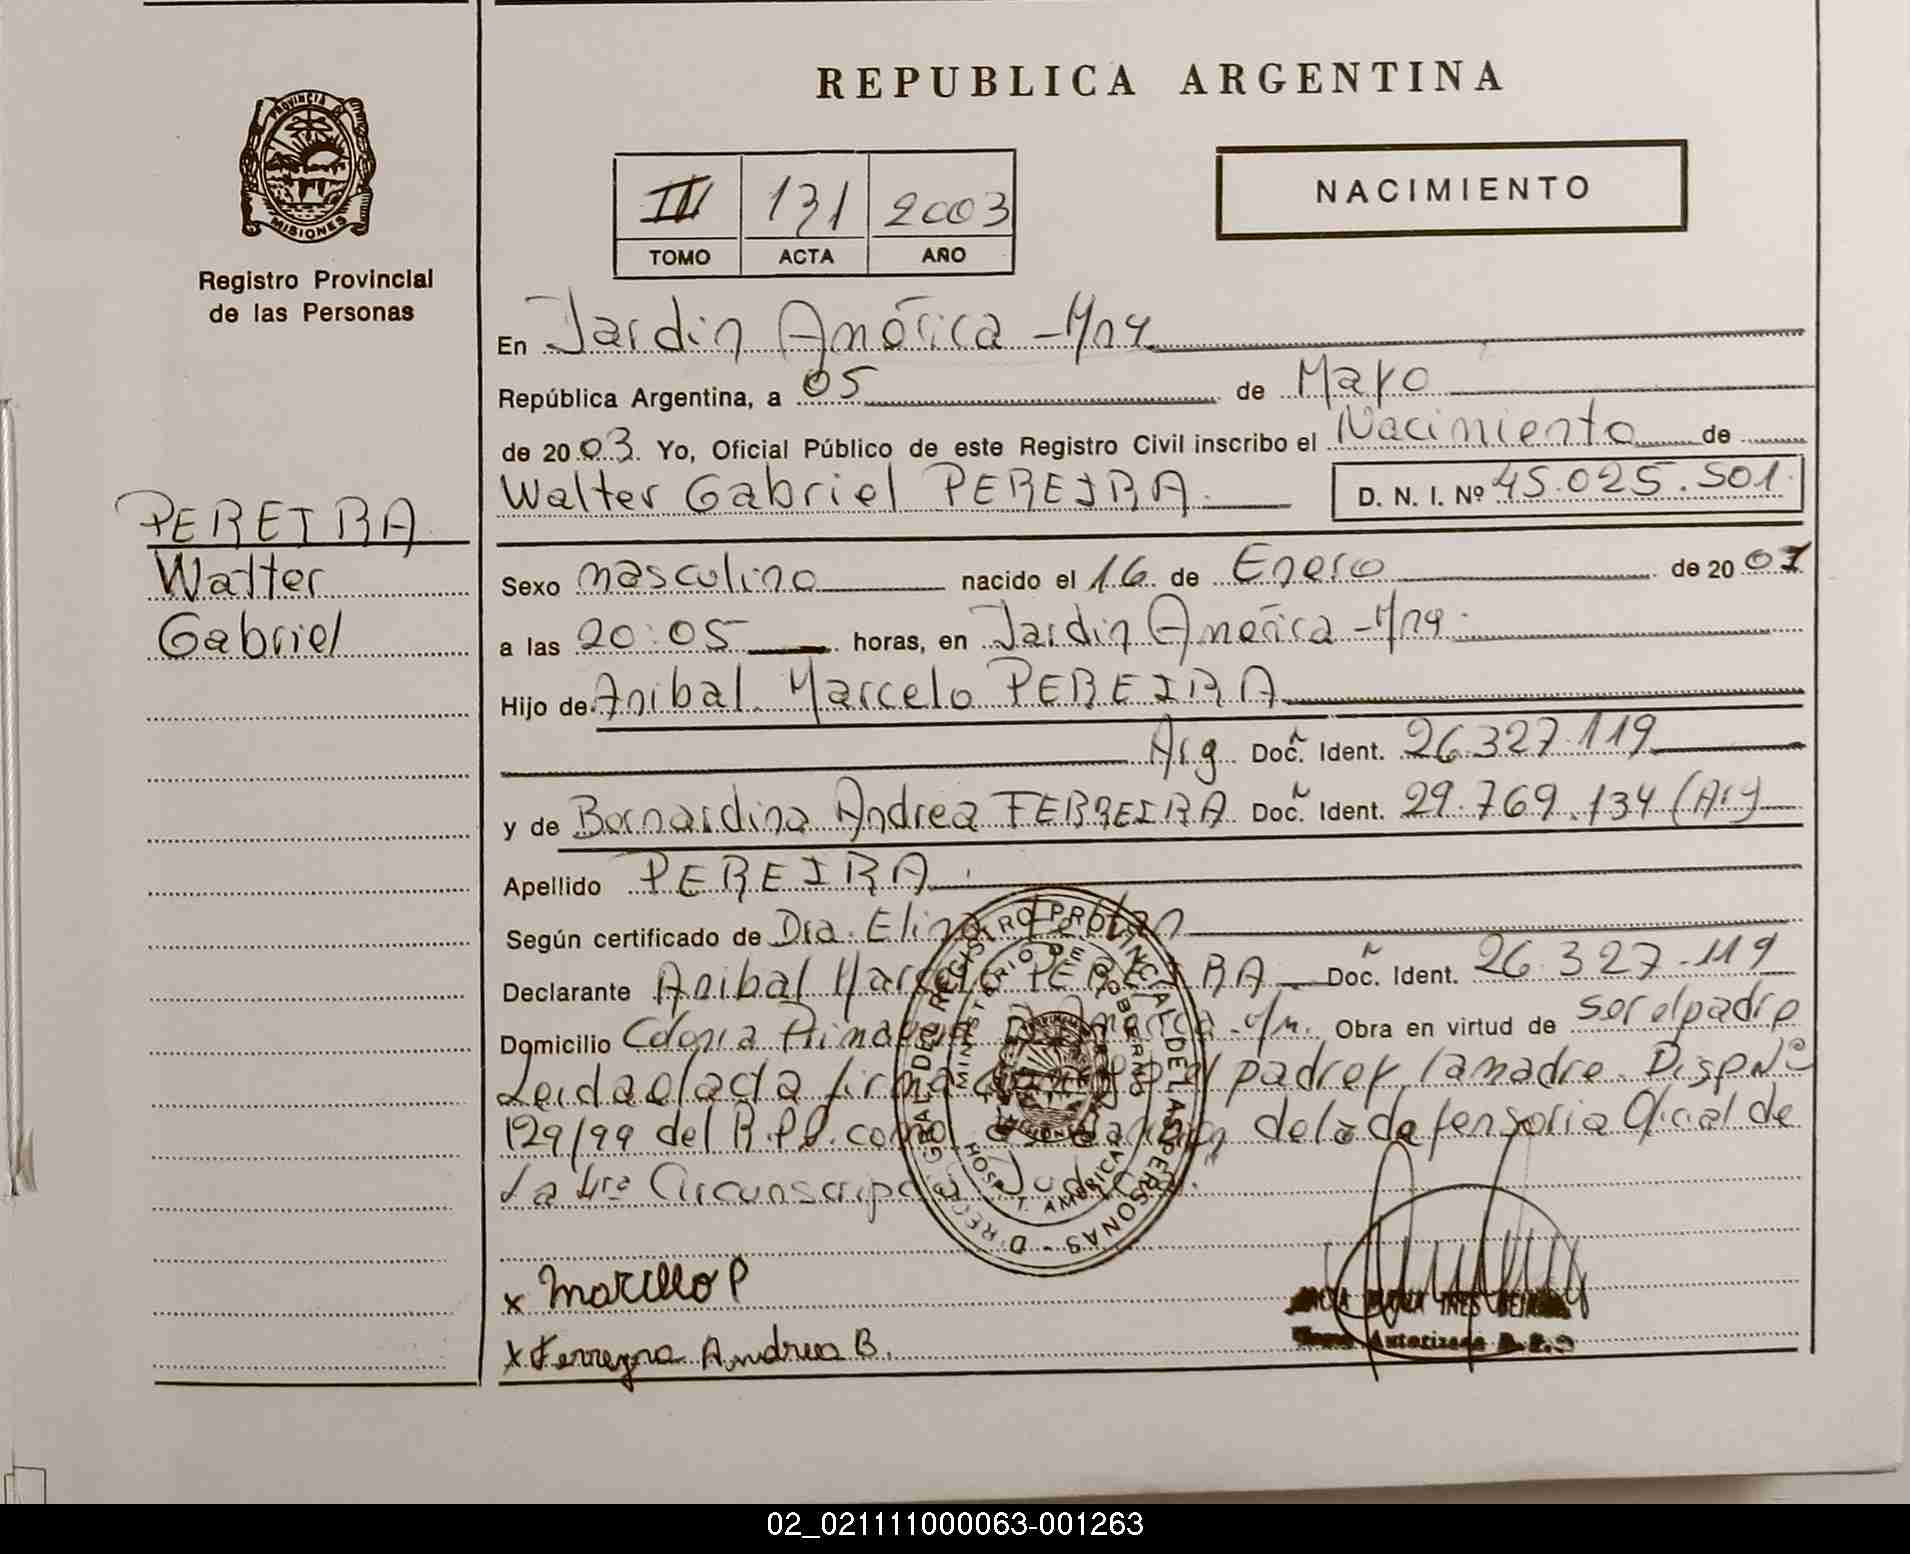 REPUBLICA ARGENTINA
PROVINCIA DE
MISIONES
Registro Provincial
de las Personas
NACIMIENTO
III 131 2003
TOMO ACTA AÑO
En Jardin América - Mns
República Argentina, a 05 de Mayo
de 2003. Yo, Oficial Público de este Registro Civil inscribo el Nacimiento de
Walter Gabriel PEREIRA. D. N. I. Nº 45.025.501.
PEREIRA
Walter
Gabriel
Sexo masculino nacido el 16 de Enero de 2001
a las 20:05 horas, en Jardin América - Mns.
Hijo de Anibal Marcelo PEREIRA
Arg Doc. Ident. 26.327.119
y de Bernardina Andrea FERREIRA Doc. Ident. 29.769.134 (Arg)
Apellido PEREIRA.
Según certificado de Dra. Elina
Declarante Anibal Marcelo PEREIRA Doc. Ident. 26.327.119
Domicilio Colonia Primavera J. América - Obra en virtud de ser el padre
Leida el acta firma el padre y la madre. Disp Nº
129/99 del R.P.P. como de la defensoria Oficial de
la 4ra Circunscripción Judicial.
DIRECC. GRAL. DEL REGISTRO PROVINCIAL DE LAS PERSONAS
MINISTERIO DE GOBIERNO
HOSP. J. AMERICA
x Marcello P
x Ferreyra Andrea B.
Autorizada
02_021111000063-001263